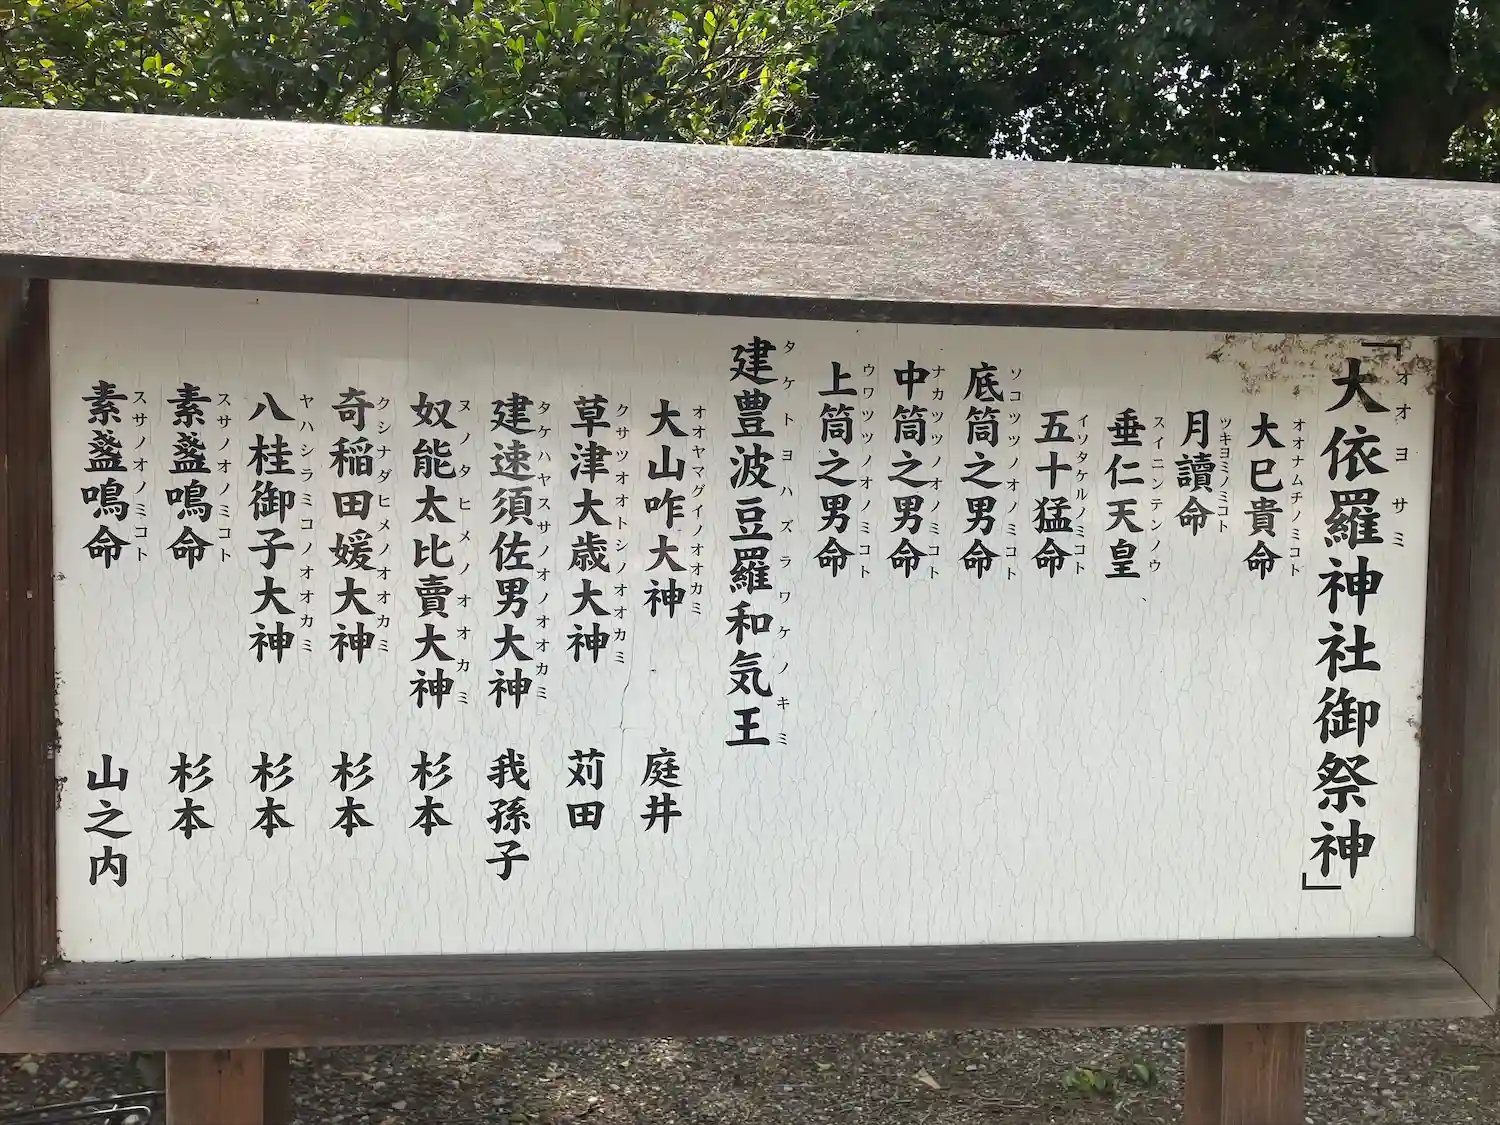 「大依羅神社御祭神」
オオヨサミ
大巳貴命
オオナムチノミコト
月讀命
ツキヨミノミコト
垂仁天皇
スイニンテンノウ
五十猛命
イソタケルノミコト
底筒之男命
ソコツツノオノミコト
中筒之男命
ナカツツノオノミコト
上筒之男命
ウワツツノオノミコト
建豊波豆羅和気王
タケトヨハズラワケノキミ
大山咋大神 庭井
オオヤマグイノオオカミ
草津大歳大神 苅田
クサツオオトシノオオカミ
建速須佐男大神 我孫子
タケハヤスサノオノオオカミ
奴能太比賣大神 杉本
ヌノタヒメノオオカミ
奇稲田媛大神 杉本
クシナダヒメノオオカミ
八桂御子大神 杉本
ヤハシラミコノオオカミ
素盞鳴命 杉本
スサノオノミコト
素盞鳴命 山之内
スサノオノミコト